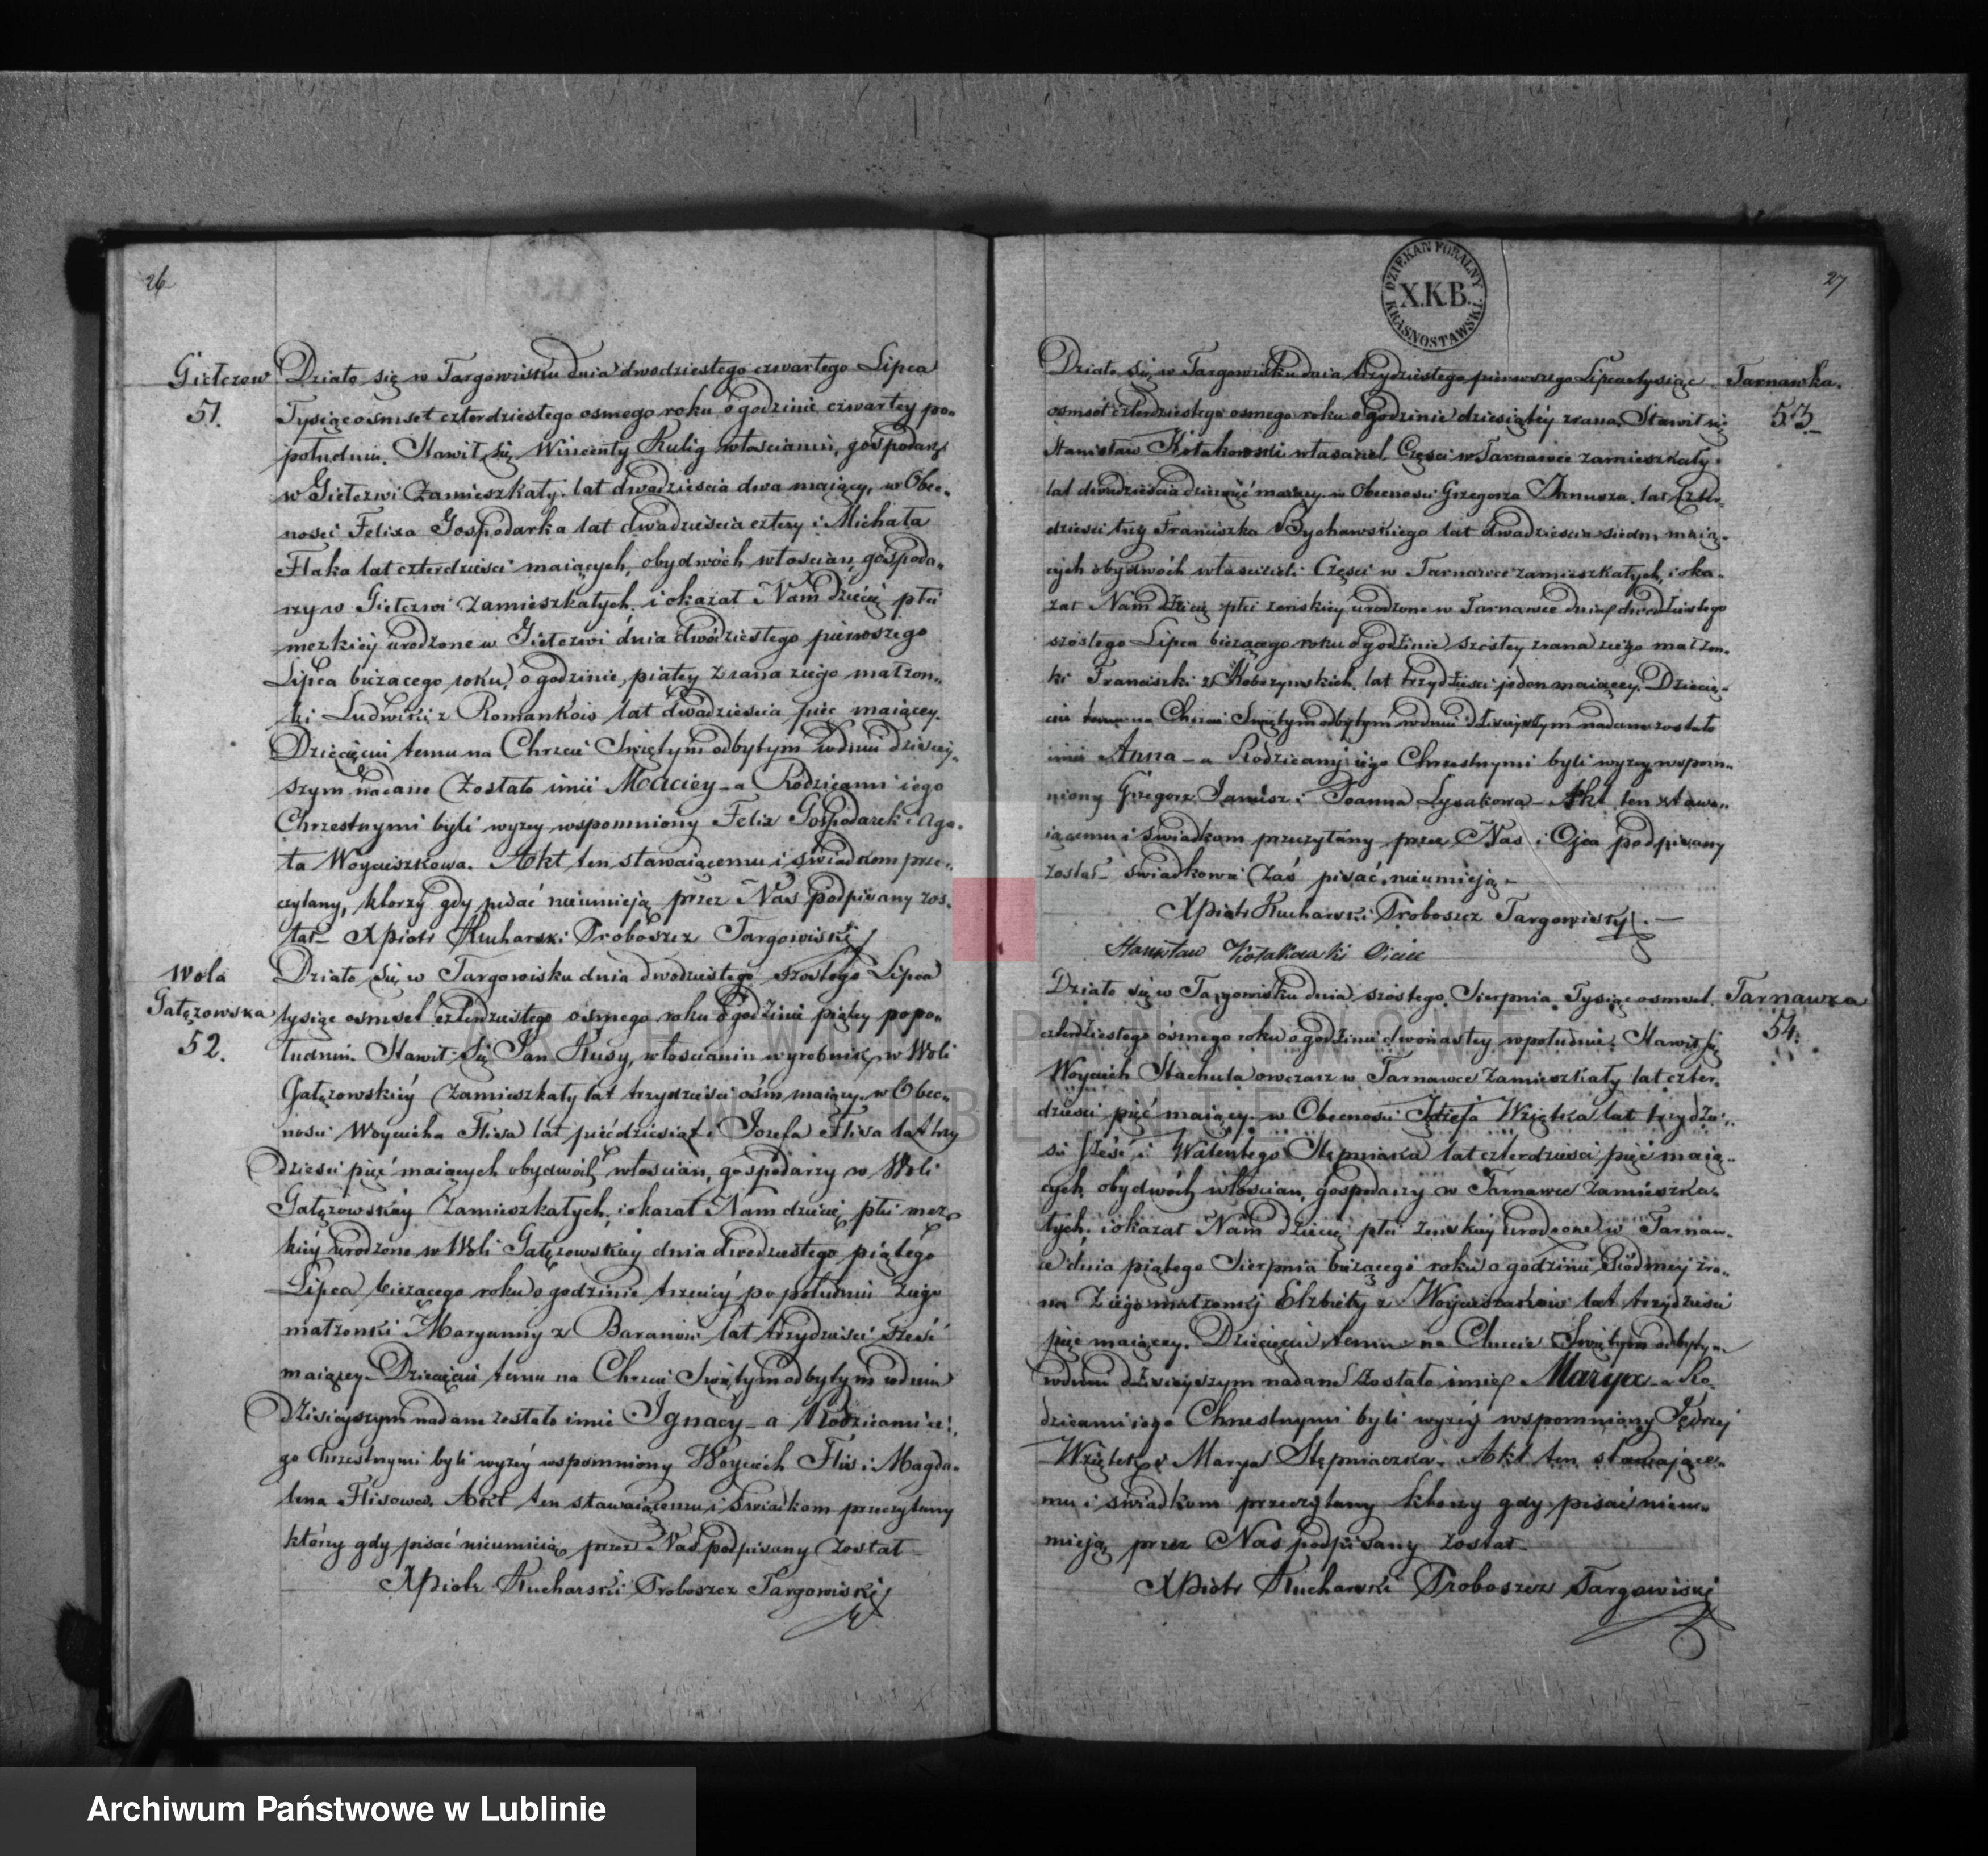 26
Giełczew
51.
Działo się w Targowisku dnia dwudziestego czwartego Lipca
Tysiąc ośmset czterdziestego osmego roku o godzinie czwartey po„
południu. Stawił się Wincenty Kulig włościanin, gospodarz
w Giełczwi Zamieszkały, lat dwadzieścia dwa maiący, w Obec„
ności Felixa Gospodarka lat dwadzieścia cztery i Michała
Flaka lat czterdzieści maiących, obydwóch włościan, gospoda„
rzy w Giełczwi Zamieszkałych, i okazał Nam dziecię płci
mezkiey urodzone w Giełczwi dnia dwódziestego pierwszego
Lipca bieżacego roku, o godzinie piątey zrana z iego małzon„
ki Ludwiki z Romanków lat dwadzieścia pięc maiącey.
Dziecięciu temu na Chrzcie Swiętym odbytym w dniu dzisiey„
szym nadane Zostało imie Maciey – a Rodzicami iego
Chrzestnymi byli wyzey wspomniony Felix Gospodarek i Aga„
ta Woyciszkowa. Akt ten stawaiącemu i świadkom prze„
czytany, ktorzy gdy pisać nieumieją przez Nas podpisany zos„
tał – X Piotr Kucharski Proboszcz Targowiski
Wola
Gałęzowska
52.
Działo się w Targowisku dnia dwodziestego szostego Lipca
tysiąc osmset czterdziestego osmego roku o godzinie piątey popo„
łudniu. Stawił się Jan Kusy, włościanin wyrobnik, w Woli
Gałęzowskiey Zamieszkały lat trzydzieści ośm maiący, w Obec„
ności Woyciecha Flisa lat pięćdziesiąt i Jozefa Flisa lat trzy
dzieści pięć maiących obydwóch włościan, gospodarzy w Woli
Gałęzowskiey Zamieszkałych, i okazał Nam dziecię płci mez„
kiey urodzone w Woli Gałęzowskiey dnia dwodziestego piątego
Lipca bieżacego roku o godzinie trzeciey po południu z iego
małzonki Maryanny z Baranów lat trzydzieści sześć
maiącey – Dziecięciu temu na Chrzcie Swiętym odbytym w dniu
dzisieyszym nadane zostało imie Ignacy – a Rodzicami ie„
go Chrzestnymi byli wyzey wspomniony Woyciech Flis i Magda„
lena Flisowa. Akt ten stawaiącemu i świadkom przeczytany
którzy gdy pisać nieumieią przez Nas podpisany Został
X Piotr Kucharski Proboszcz Targowiski
DZIEKAN FORALNY
X.K.B.
KRASNOSTAWSKI
27
Tarnawka.
53.
Działo się w Targowisku dnia trzydziestego pierwszego Lipca tysiąc
osmset czterdziestego osmego roku o godzinie dziesiątéy zrana, Stawił się
Stanisław Kołakowski własciciel Części w Tarnawce zamieszkały
lat dwadzieścia dziewięć maiący w Obecności Grzegorza Janusza, lat czter„
dzieści trzy Franciszka Bychawskiego lat dwadzieścia siedm maią„
cych obydwóch właścicieli Części w Tarnawce zamieszkałych, i oka„
zał Nam dziecię płci zeńskiey urodzone w Tarnawce dnia dwudziestego
szóstego Lipca bieżącego roku o godzinie szóstey zrana z iego małzon„
ki Franciszki z Kobrzynskich, lat trzydzieści jeden maiącey. Dziecię„
ciu temu na Chrzcie Swiętym odbytym w dniu dzisieyszym nadane zostało
imie Anna – a Rodzicami iego Chrzestnymi byli wyzey wspom„
niony Grzegorz Janusz i Joanna Łysakowa – Akt ten stawa„
iącemu i świadkom przeczytany przez Nas i Ojca podpisany
został – świadkowie Zaś pisać nieumieją –
X Piotr Kucharski Proboszcz Targowiski
Stanisław Kołakowski Ociec
Tarnawka
54.
Działo się w Targowisku dnia szóstego Sierpnia Tysiąc osmset
czterdziestego ósmego roku o godzinie dwonastey w południe. Stawił się
Woyciech Stachula owczarz w Tarnawce Zamieszkały lat czter„
dzieści pięć maiący w Obecności Jędrzeja Wziętka lat trzydzie„
ści sześć i Walentego Stępniaka lat czterdzieści pięć maią„
cych, obydwóch włościan, gospodarzy w Tarnawce Zamieszka„
łych, i okazał Nam dziecię płci zeńskiey urodzone w Tarnaw„
ce dnia piątego Sierpnia bieżącego roku o godzinie siódmey zra„
na Z iego małzonki Elzbiety z Woyciszków lat trzydzieści
pięc maiącey. Dziecięciu temu na Chrzcie Swiętym odbyty„
w dniu dzisieyszym nadane Zostało imie Marya – a Ro„
dzicami iego Chrzestnymi byli wyzéy wspomniony Jędrzej
Wziętek i Marya Stępniaczka – Akt ten stawające„
mu i świadkom przeczytany którzy gdy pisać nieu„
mieją przez Nas podpisany został –
X Piotr Kucharski Proboszcz Targowiski
ARCHIWUM PAŃSTWOWE
W LUBLINIE
Archiwum Państwowe w Lublinie